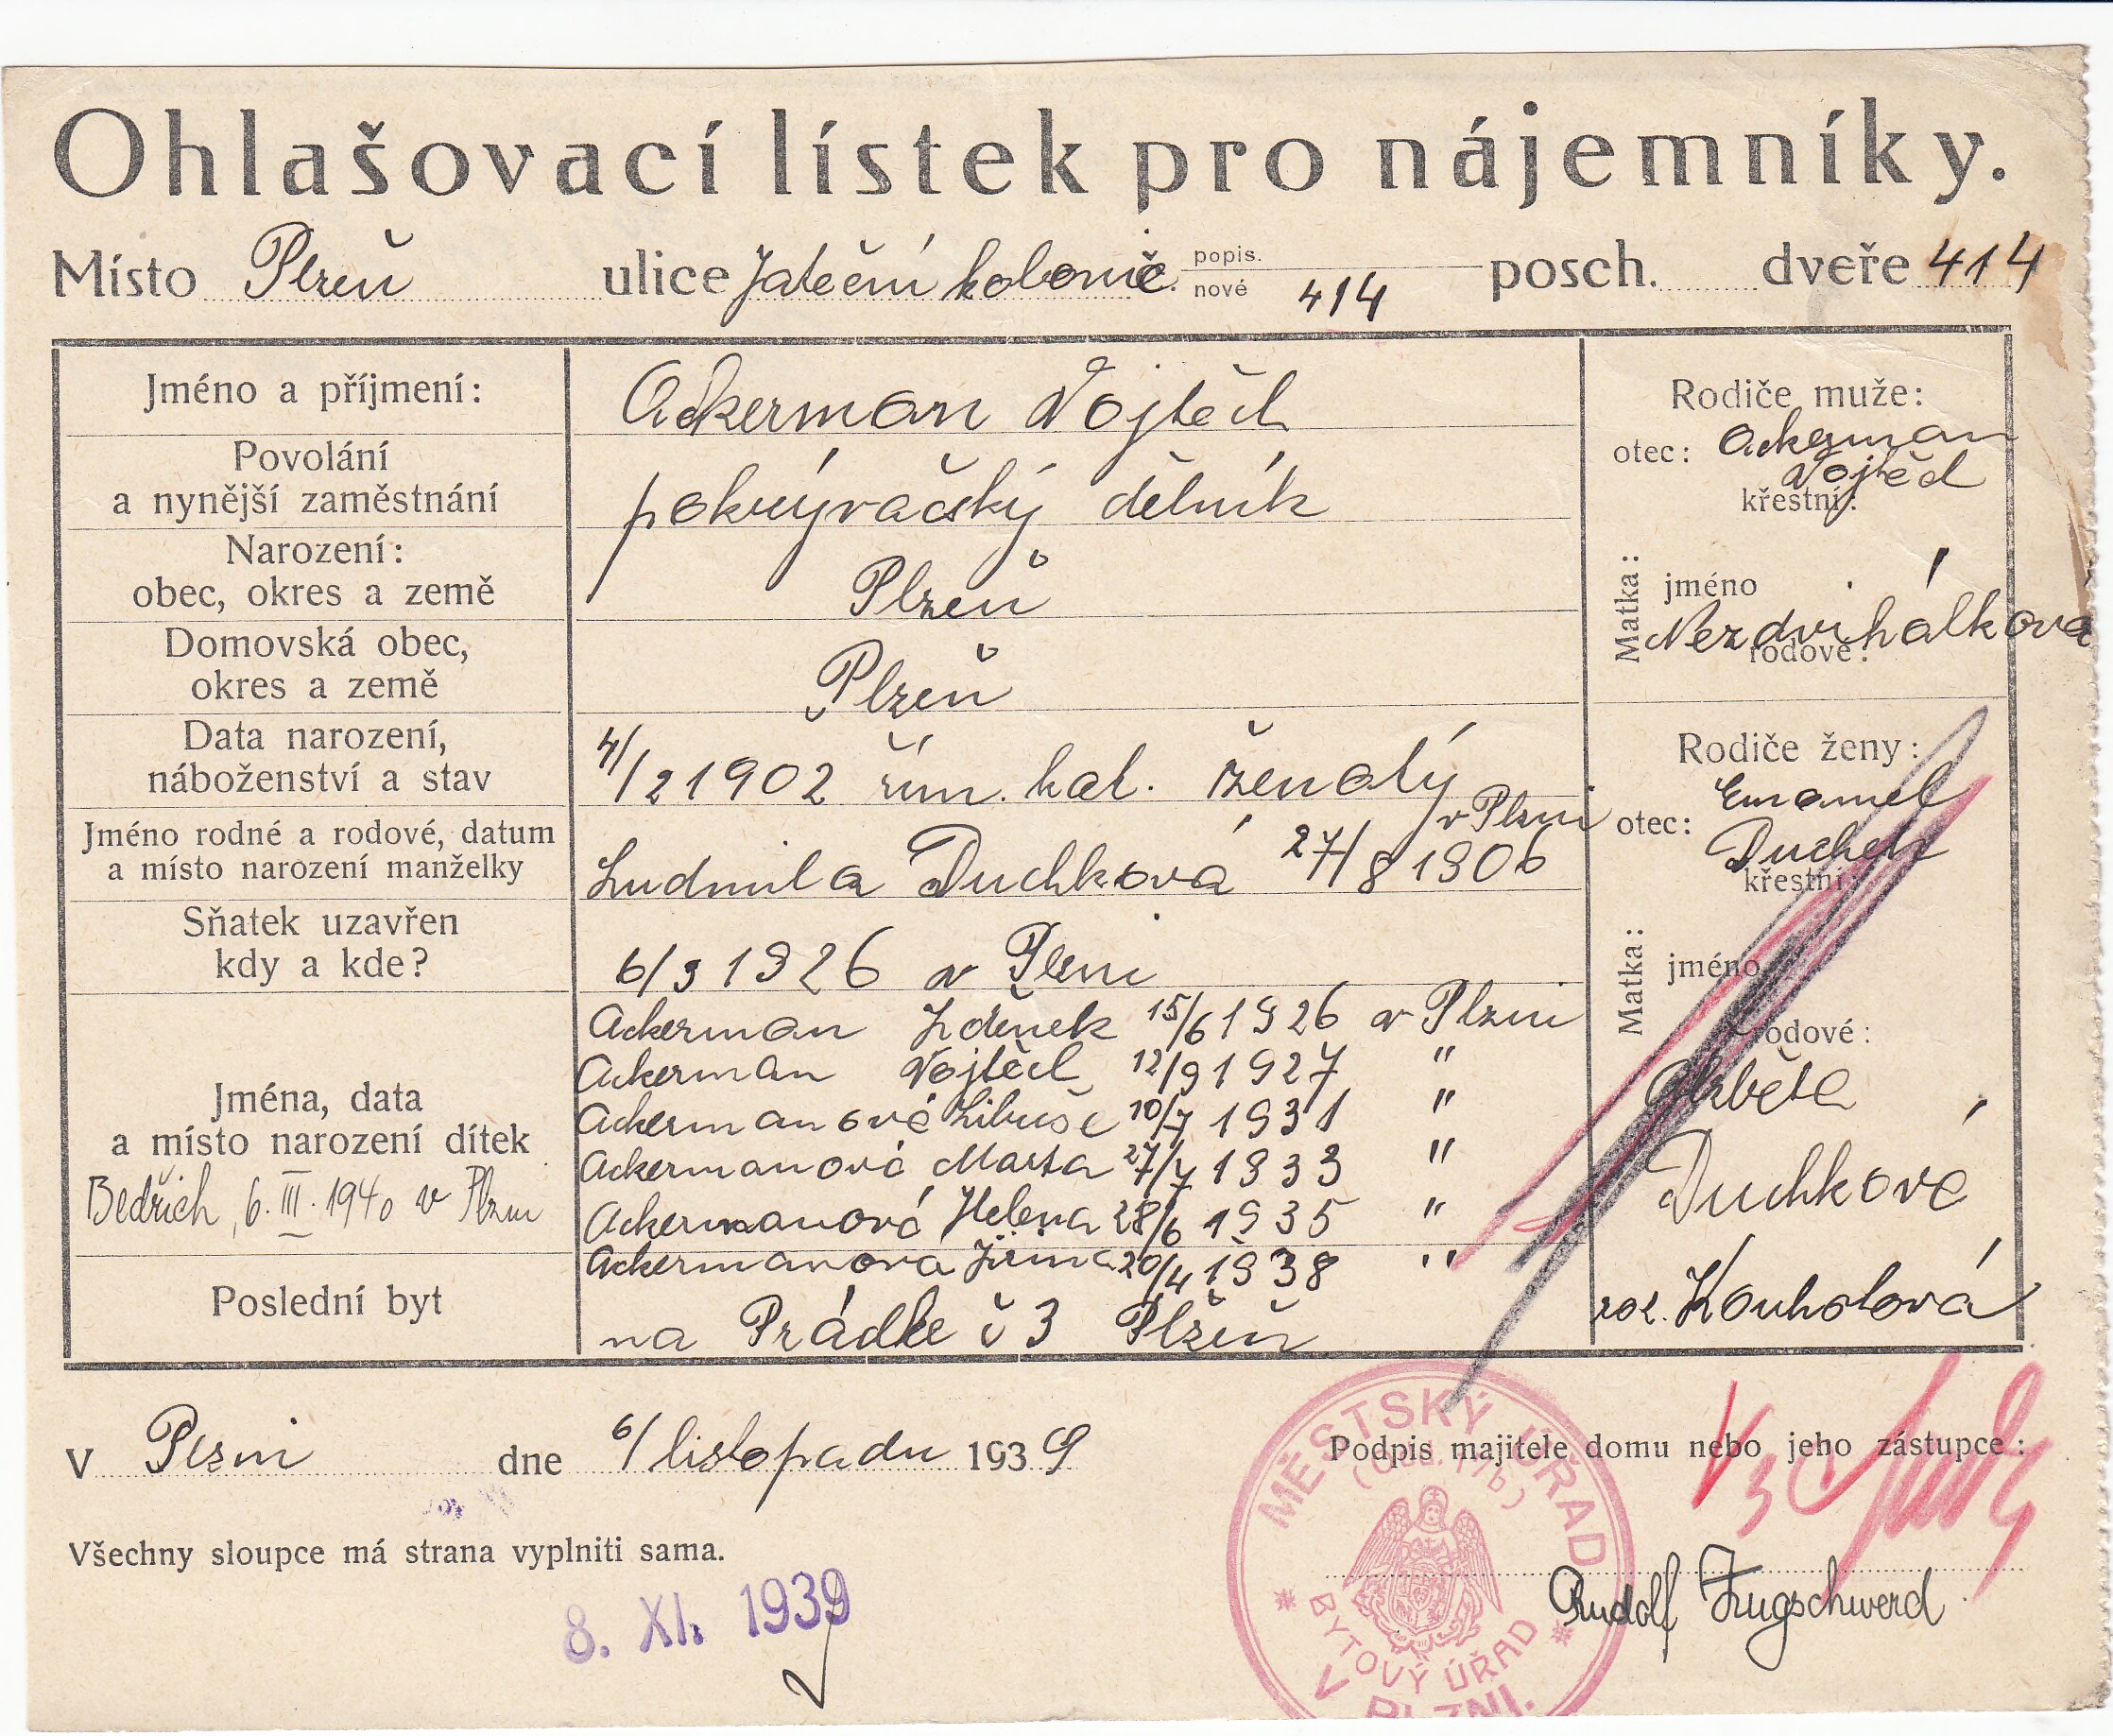 Ohlašovací lístek pro nájemníky.
Místo Plzeň ulice Jateční kolonie č. popis. nové 414 posch. dveře 414
Jméno a příjmení: Ackerman Vojtěch
Povolání a nynější zaměstnání pokrývačský dělník
Narození: obec, okres a země Plzeň
Domovská obec, okres a země Plzeň
Data narození, náboženství a stav 4/2 1902 řím. kat. ženatý
Jméno rodné a rodové, datum a místo narození manželky Ludmila Duchková 27/8 1906 v Plzni
Sňatek uzavřen kdy a kde? 6/3 1926 v Plzni
Jména, data a místo narození dítek
Ackerman Zdeněk 15/6 1926 v Plzni
Ackerman Vojtěch 12/9 1927 "
Ackermanová Libuše 10/7 1931 "
Ackermanová Marta 27/7 1933 "
Ackermanová Helena 28/6 1935 "
Ackermanová Jiřina 20/4 1938 "
Bedřich, 6. III. 1940 v Plzni
Poslední byt na Prádle č 3 Plzeň
Rodiče muže:
otec: Ackerman
Vojtěch
křestní:
Matka: jméno
Nezdvihálková
rodové:
Rodiče ženy:
otec: Emanuel
Duchek
křestní:
Matka: jméno
rodové:
Alžběta
Duchková
roz. Kouholová
V Plzni dne 6/ listopadu 1939
Podpis majitele domu nebo jeho zástupce:
Všechny sloupce má strana vyplniti sama.
Rudolf Zugschwerd
8. XI. 1939
MĚSTSKÝ ÚŘAD
BYTOVÝ ÚŘAD
V PLZNI.